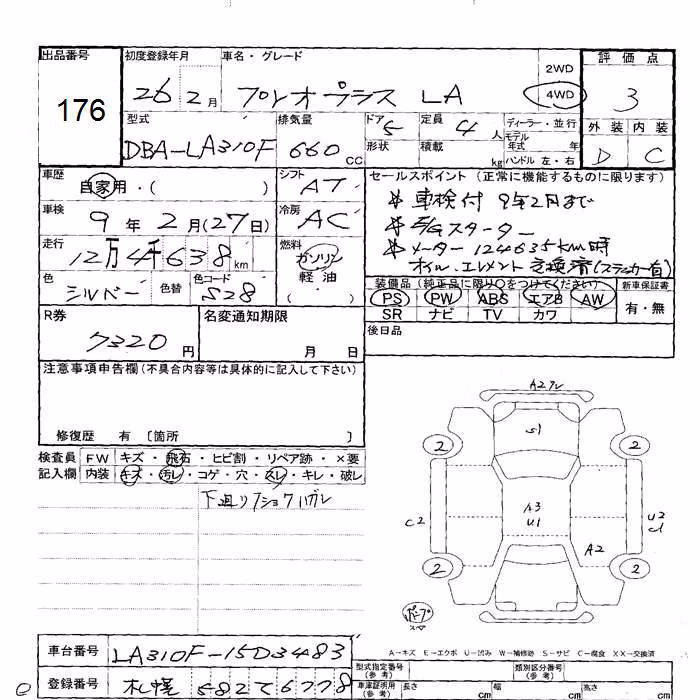 出品番号 初度登録年月 車名・グレード 2WD 評価点
176 26 2月 プレオプラス LA 4WD 3
型式 排気量 ドア 5 定員 4人 ディーラー・並行 外装 内装
DBA-LA310F 660 CC 形状 積載 kg モデル年式 年 D C
ハンドル 左・右
車歴 シフト セールスポイント (正常に機能するものに限ります)
自家用・( ) AT 車検付 9年2月まで
車検 冷房 E/Gスターター
9年2月(27日) AC メーター 124635km時
走行 燃料 オイル、エレメント交換済(ステッカー有)
12万4千638km ガソリン
軽油
( )
色 色替 色コード 装備品 (純正品に限り○をつけてください) 新車保証書
シルバー S28 PS PW ABS エアB AW 有・無
R券 名変通知期限 SR ナビ TV カワ
7320円 月 日 後日品
注意事項申告欄(不具合内容等は具体的に記入して下さい)
修復歴 有 〔箇所 〕
検査員 FW キズ・飛石・ヒビ割・リペア跡・×要
記入欄 内装 キズ・汚レ・コゲ・穴・スレ・キレ・破レ
下廻リフショクハガレ
A2
S1
2 2
A3
U1
C2 U2
C1
A2
2 2
スペア
A-キズ E-エクボ U-凹み W-補修跡 S-サビ C-腐食 XX-交換済
車台番号 LA310F-1503483 型式指定番号(参考) 類別区分番号(参考)
登録番号 札幌 582 7778 車庫証明用(参考) 長さ cm 幅 cm 高さ cm